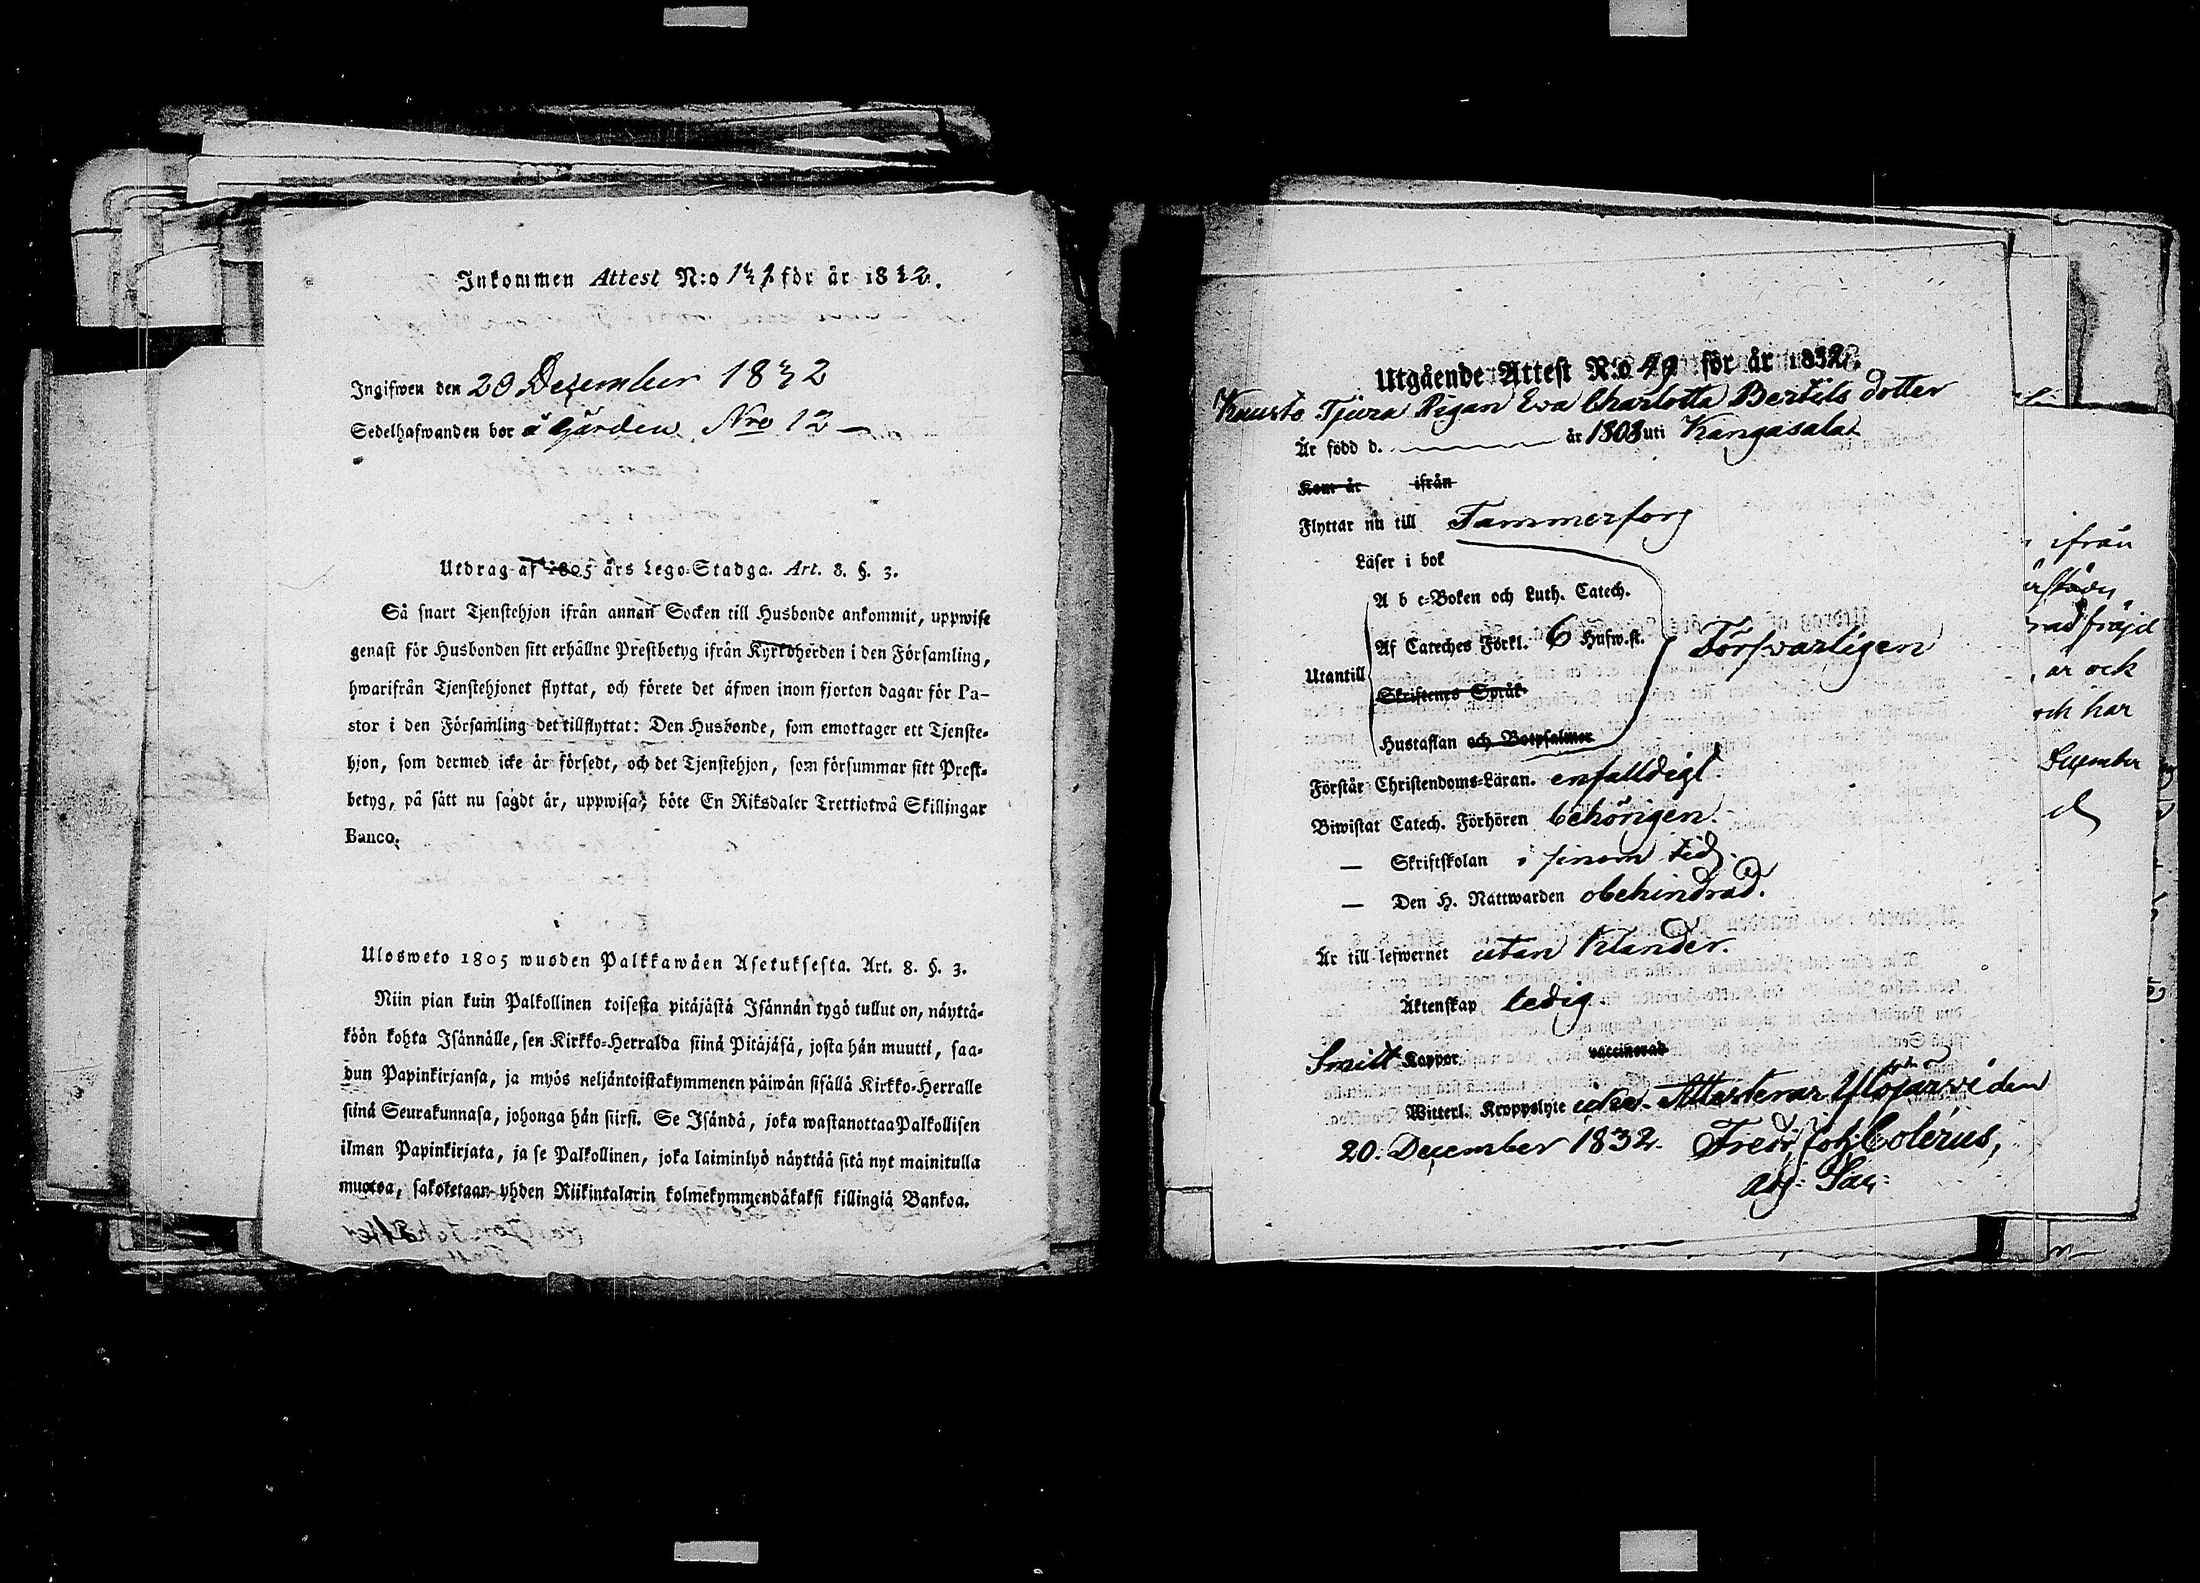 Inkommen Attest N:o 141 för år 1832.
Ingifwen den 29 December 1832
Sedelhafwanden bor å Gården Nro 12 —
Utdrag af 1805 års Lego-Stadga. Art. 8. §. 3.
Så snart Tjenstehjon ifrån annan Socken till Husbonde ankommit, uppwise
genast för Husbonden sitt erhållne Prestbetyg ifrån Kyrkoherden i den Församling,
hwarifrån Tjenstehjonet flyttat, och förete det äfwen inom fjorton dagar för Pa-
stor i den Församling det tillflyttat: Den Husbonde, som emottager ett Tjenste-
hjon, som dermed icke är försedt, och det Tjenstehjon, som försummar sitt Prest-
betyg, på sätt nu sagdt är, uppwisa, böte En Riksdaler Trettiotwå Skillingar
Banco.
Ulosweto 1805 wuoden Palkkawäen Asetuksesta. Art. 8. §. 3.
Niin pian kuin Palkollinen toisesta pitäjästä Isännän tygö tullut on, näyttä-
köön kohta Isännälle, sen Kirkko-Herralda siinä Pitäjäsä, josta hän muutti, saa-
dun Papinkirjansa, ja myös neljäntoistakymmenen päiwän sisällä Kirkko-Herralle
siinä Seurakunnasa, johonga hän siirsi. Se Isändä, joka wastanottaa Palkollisen
ilman Papinkirjata, ja se Palkollinen, joka laiminlyö näyttää sitä nyt mainitulla
muotoa, sakoketaan yhden Riikintalarin kolmekymmendäkaksi killingiä Bankoa.
Utgående Attest N:o 49 för år 1832.
Kuusto Tjura Pigan Eva Charlotta Bertils dotter
Är född d. — år 1808 uti Kangasala
Kom år ifrån
Flyttar nu till Tammerfors
Läser i bok
A b c-Boken och Luth. Catech.
Af Cateches Förkl. 6 Hufw.st. Försvarligen
Utantill
Skriftenes Språk
Hustaflan och Botpsalmer
Förstår Christendoms-Läran. enfaldigt
Biwistat Catech. Förhören behörigen.
— Skriftskolan i sinom tid.
— Den H. Nattwarden obehindrad.
Är till lefwernet utan klander.
Äktenskap ledig
Smitt Koppor vaccinerad
Witterl. Kroppslyte icke. Attesterar Ylöjärvi den
20. December 1832. Fredr. Joh: Colérus,
Adj: Sac:
ifrån
är ock
och har
December